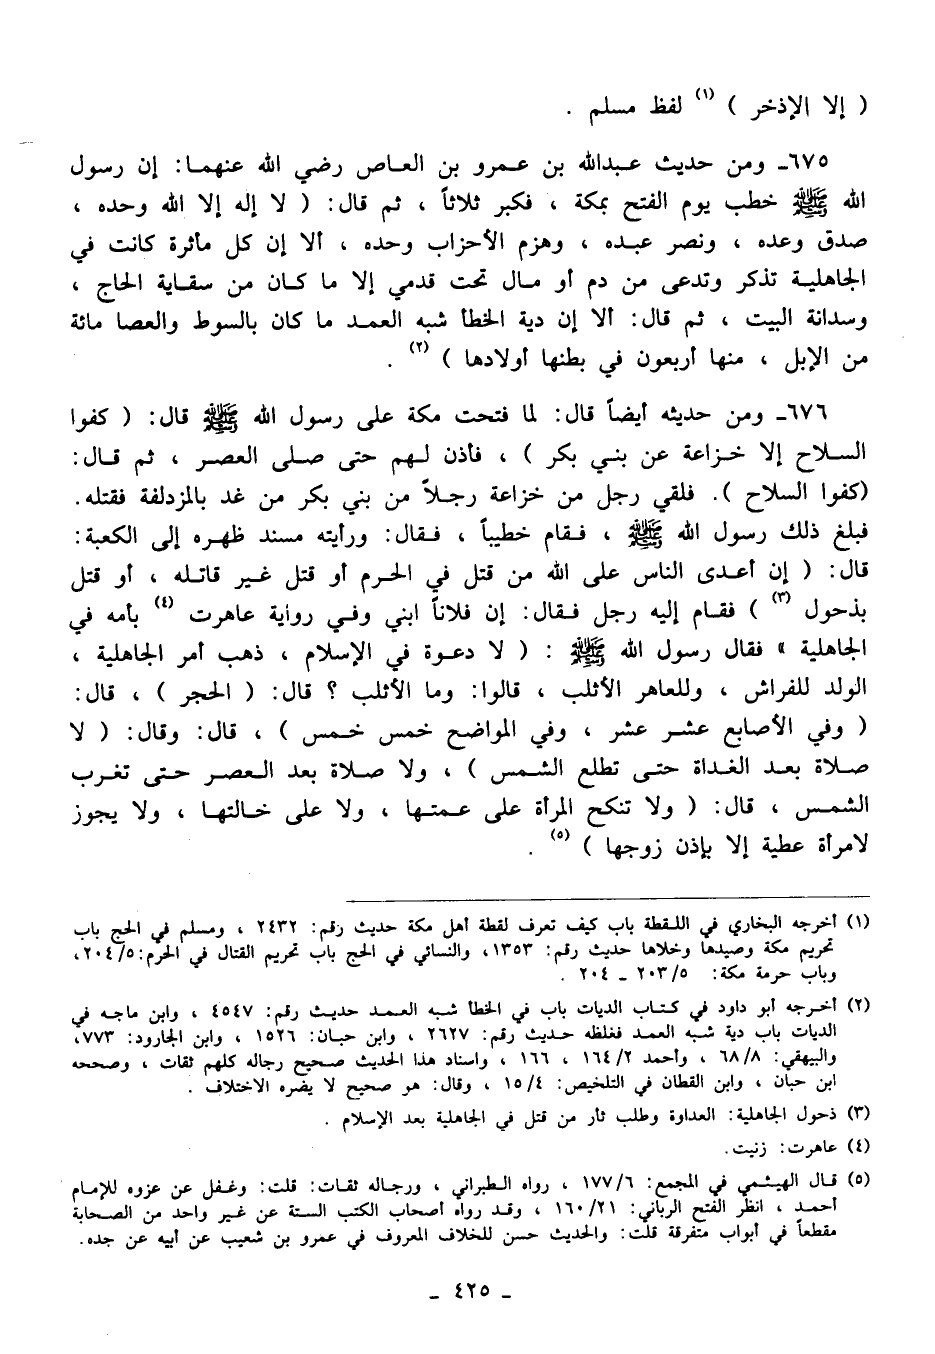 ( إلا الإذخر ) (١) لفظ مسلم .
٦٧٥ـ ومن حديث عبدالله بن عمرو بن العاص رضي الله عنهما: إن رسول
الله ﷺ خطب يوم الفتح بمكة ، فكبر ثلاثاً ، ثم قال: ( لا إله إلا الله وحده ،
صدق وعده ، ونصر عبده ، وهزم الأحزاب وحده ، ألا إن كل مأثرة كانت في
الجاهلية تذكر وتدعى من دم أو مال تحت قدمي إلا ما كان من سقاية الحاج ،
وسدانة البيت ، ثم قال: ألا إن دية الخطأ شبه العمد ما كان بالسوط والعصا مائة
من الإبل ، منها أربعون في بطنها أولادها ) (٢) .
٦٧٦ـ ومن حديثه أيضاً قال: لما فتحت مكة على رسول الله ﷺ قال: ( كفوا
السلاح إلا خزاعة عن بني بكر ) ، فأذن لهم حتى صلى العصر ، ثم قال:
(كفوا السلاح ). فلقي رجل من خزاعة رجلاً من بني بكر من غد بالمزدلفة فقتله.
فبلغ ذلك رسول الله ﷺ ، فقام خطيباً ، فقال: ورأيته مسند ظهره إلى الكعبة:
قال: ( إن أعدى الناس على الله من قتل في الحرم أو قتل غير قاتله ، أو قتل
بذحول (٣) ) فقام إليه رجل فقال: إن فلاناً ابني وفي رواية عاهرت (٤) بأمه في
الجاهلية » فقال رسول الله ﷺ : ( لا دعوة في الإسلام ، ذهب أمر الجاهلية ،
الولد للفراش ، وللعاهر الأثلب ، قالوا: وما الأثلب ؟ قال: ( الحجر ) ، قال:
( وفي الأصابع عشر عشر ، وفي المواضح خمس خمس ) ، قال: وقال: ( لا
صلاة بعد الغداة حتى تطلع الشمس ) ، ولا صلاة بعد العصر حتى تغرب
الشمس ، قال: ( ولا تنكح المرأة على عمتها ، ولا على خالتها ، ولا يجوز
لامرأة عطية إلا بإذن زوجها ) (٥) .
(١) أخرجه البخاري في اللقطة باب كيف تعرف لقطة أهل مكة حديث رقم: ٢٤٣٢ ، ومسلم في الحج باب
تحريم مكة وصيدها وخلاها حديث رقم: ١٣٥٣، والنسائي في الحج باب تحريم القتال في الحرم: ٢٠٤/٥،
وباب حرمة مكة: ٢٠٣/٥ ـ ٢٠٤ .
(٢) أخرجه أبو داود في كتاب الديات باب في الخطأ شبه العمد حديث رقم: ٤٥٤٧ ، وابن ماجه في
الديات باب دية شبه العمد فغلظه حديث رقم: ٢٦٢٧ ، وابن حبان: ١٥٢٦ ، وابن الجارود: ٧٧٣،
والبيهقي: ٦٨/٨ ، وأحمد ١٦٤/٢ ، ١٦٦ ، واسناد هذا الحديث صحيح رجاله كلهم ثقات ، وصححه
ابن حبان ، وابن القطان في التلخيص: ١٥/٤ ، وقال: هو صحيح لا يضره الاختلاف .
(٣) ذحول الجاهلية: العداوة وطلب ثأر من قتل في الجاهلية بعد الإسلام .
(٤) عاهرت: زنيت.
(٥) قال الهيثمي في المجمع: ١٧٧/٦ ، رواه الطبراني ، ورجاله ثقات: قلت: وغفل عن عزوه للإمام
أحمد ، انظر الفتح الرباني: ١٦٠/٢١ ، وقد رواه أصحاب الكتب الستة عن غير واحد من الصحابة
مقطعاً في أبواب متفرقة قلت: والحديث حسن للخلاف المعروف في عمرو بن شعيب عن أبيه عن جده.
ـ ٤٢٥ ـ